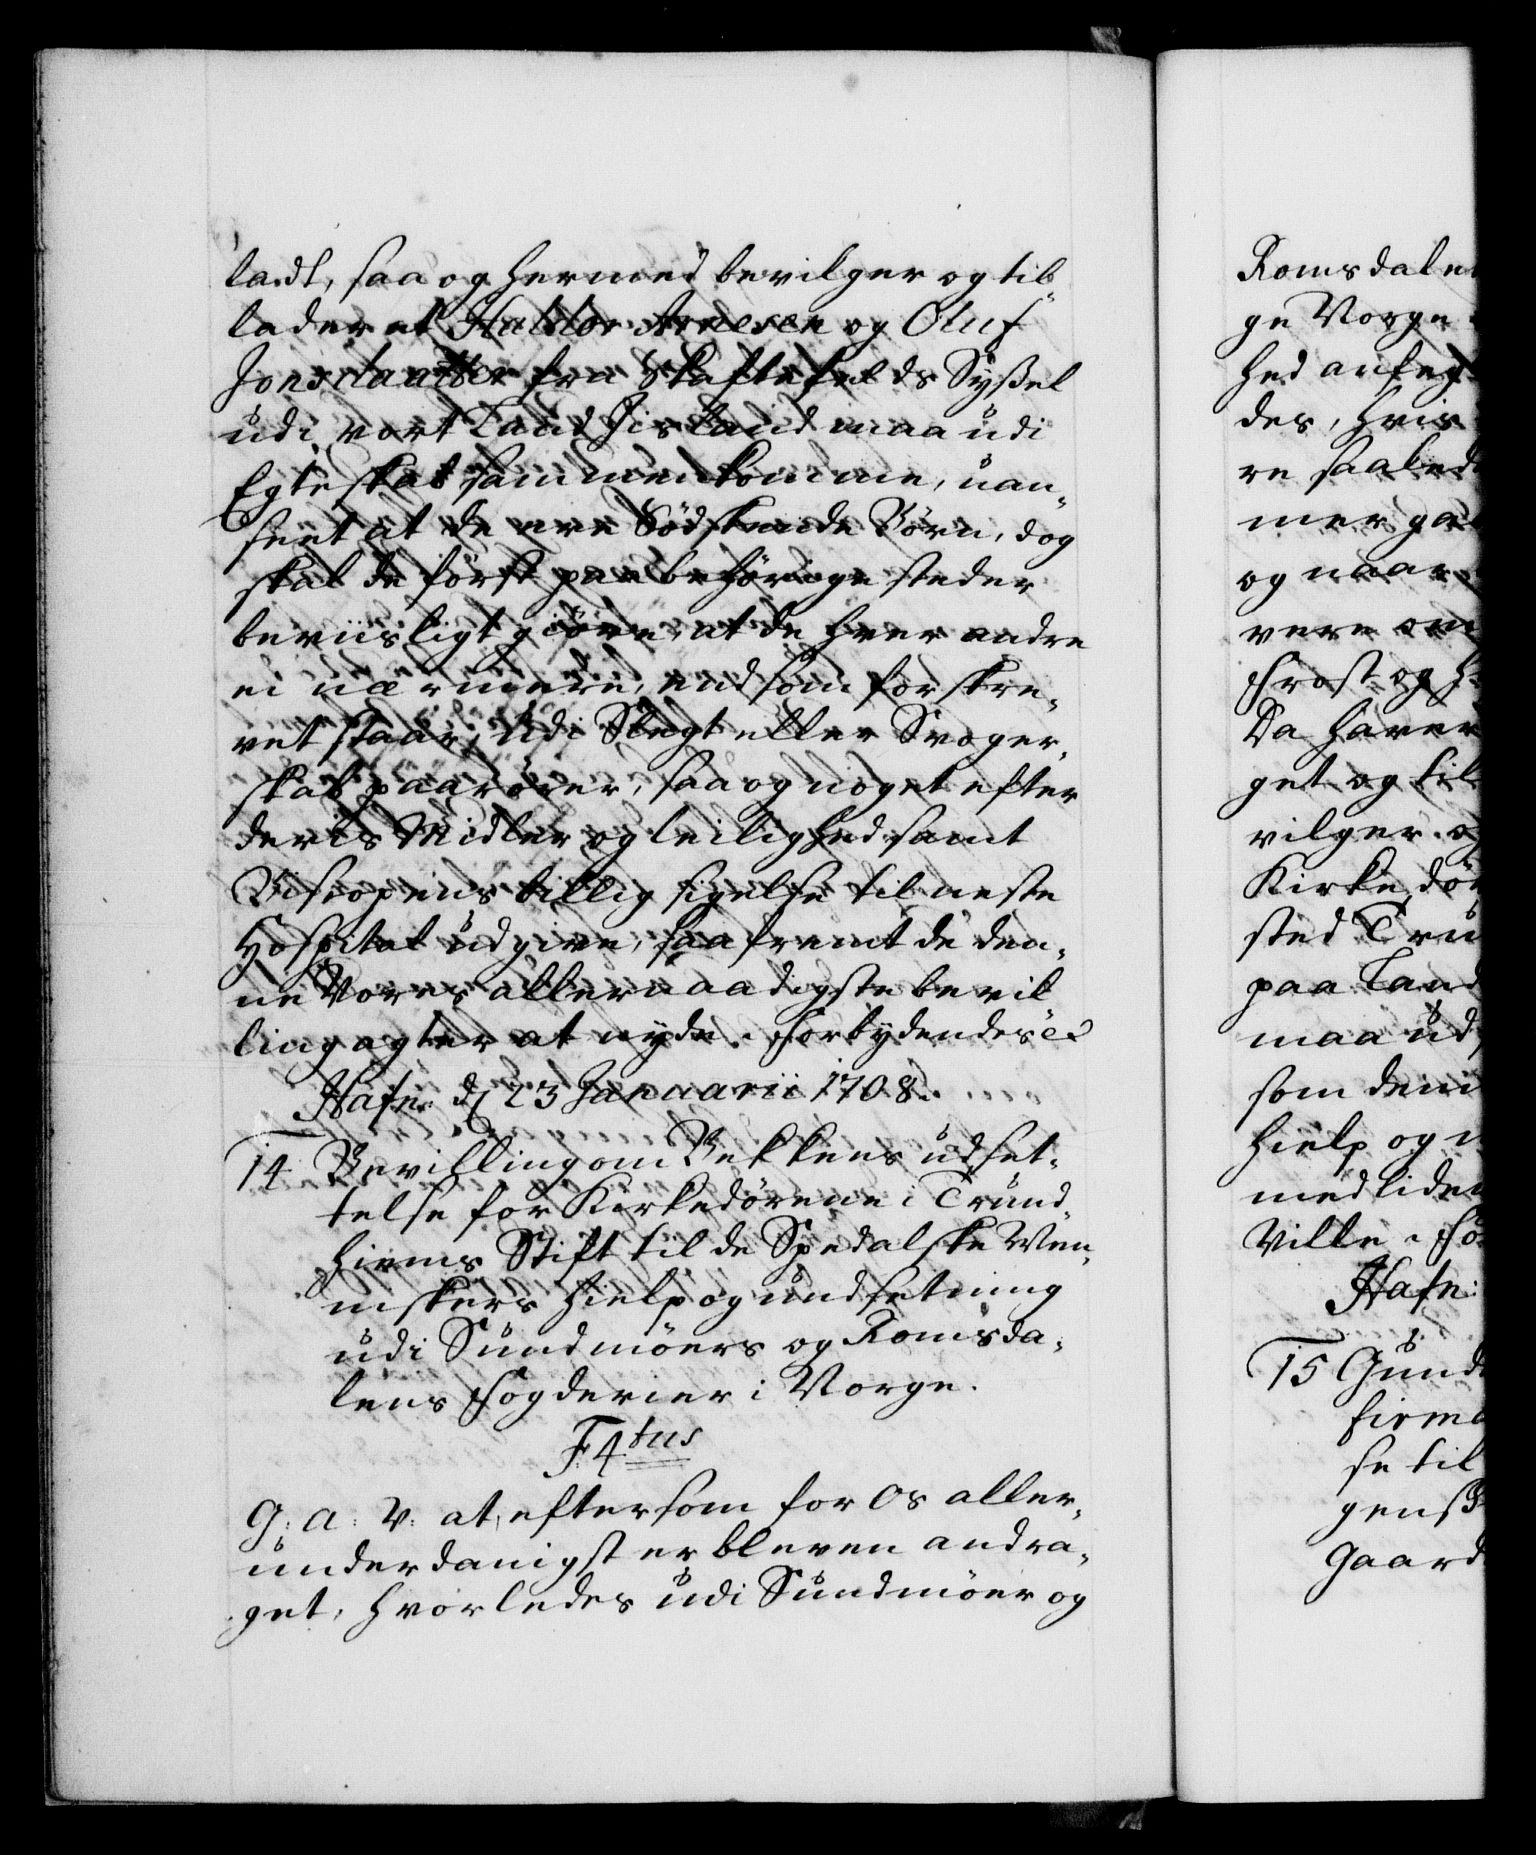 ladt, saa og hermed bevilger og til-
lader at Haldor Arnesen og Oluf
Jonsdaatter fra Skaftefelds Syßel
udi vort Land Jisland maa udi
Egteskab sammenkomme, uan-
seet at de ere Södskende Börn, dog
skal de först paa behörige steder
beviisligt giöre, at de hver andre
ei nærmere, end som forskre-
vet staar, udi Slegt eller Svoger-
skab paarörer, saa og noget efter
deris Midler og leilighed samt
Biscopens tillig sigelse til neste
Hospital udgive, saafremt de den-
ne Vores allernaadigste bevil
ling agter at nyde. Forbydendes etc
Hafn: d 23 Januarii 1708.
14 Bevilling om Bekkens udset-
telse for Kirkedörene i Trund-
hiems Stift til de Spedalske Men-
niskers hielp og undsetning
udi Sundmöers og Romsda-
lens Fogderier i Norge.
F: 4tus
G: A: V: at, eftersom for Os aller-
underdanigst er bleven andra-
get, hvorledes udi Sundmöer og
Romsdalen
ge Norge
hed anfeg
des, hvis
re saaled
mer ga
og naar
vere om
Frost og H
Da haver
get og til
vilger og
Kirke dör
sted Tru
paa Land
maa ud
som dem
hielp og
medliden
Ville. For
Hafn:
15 Gund
firma
se til
genß
Gaard